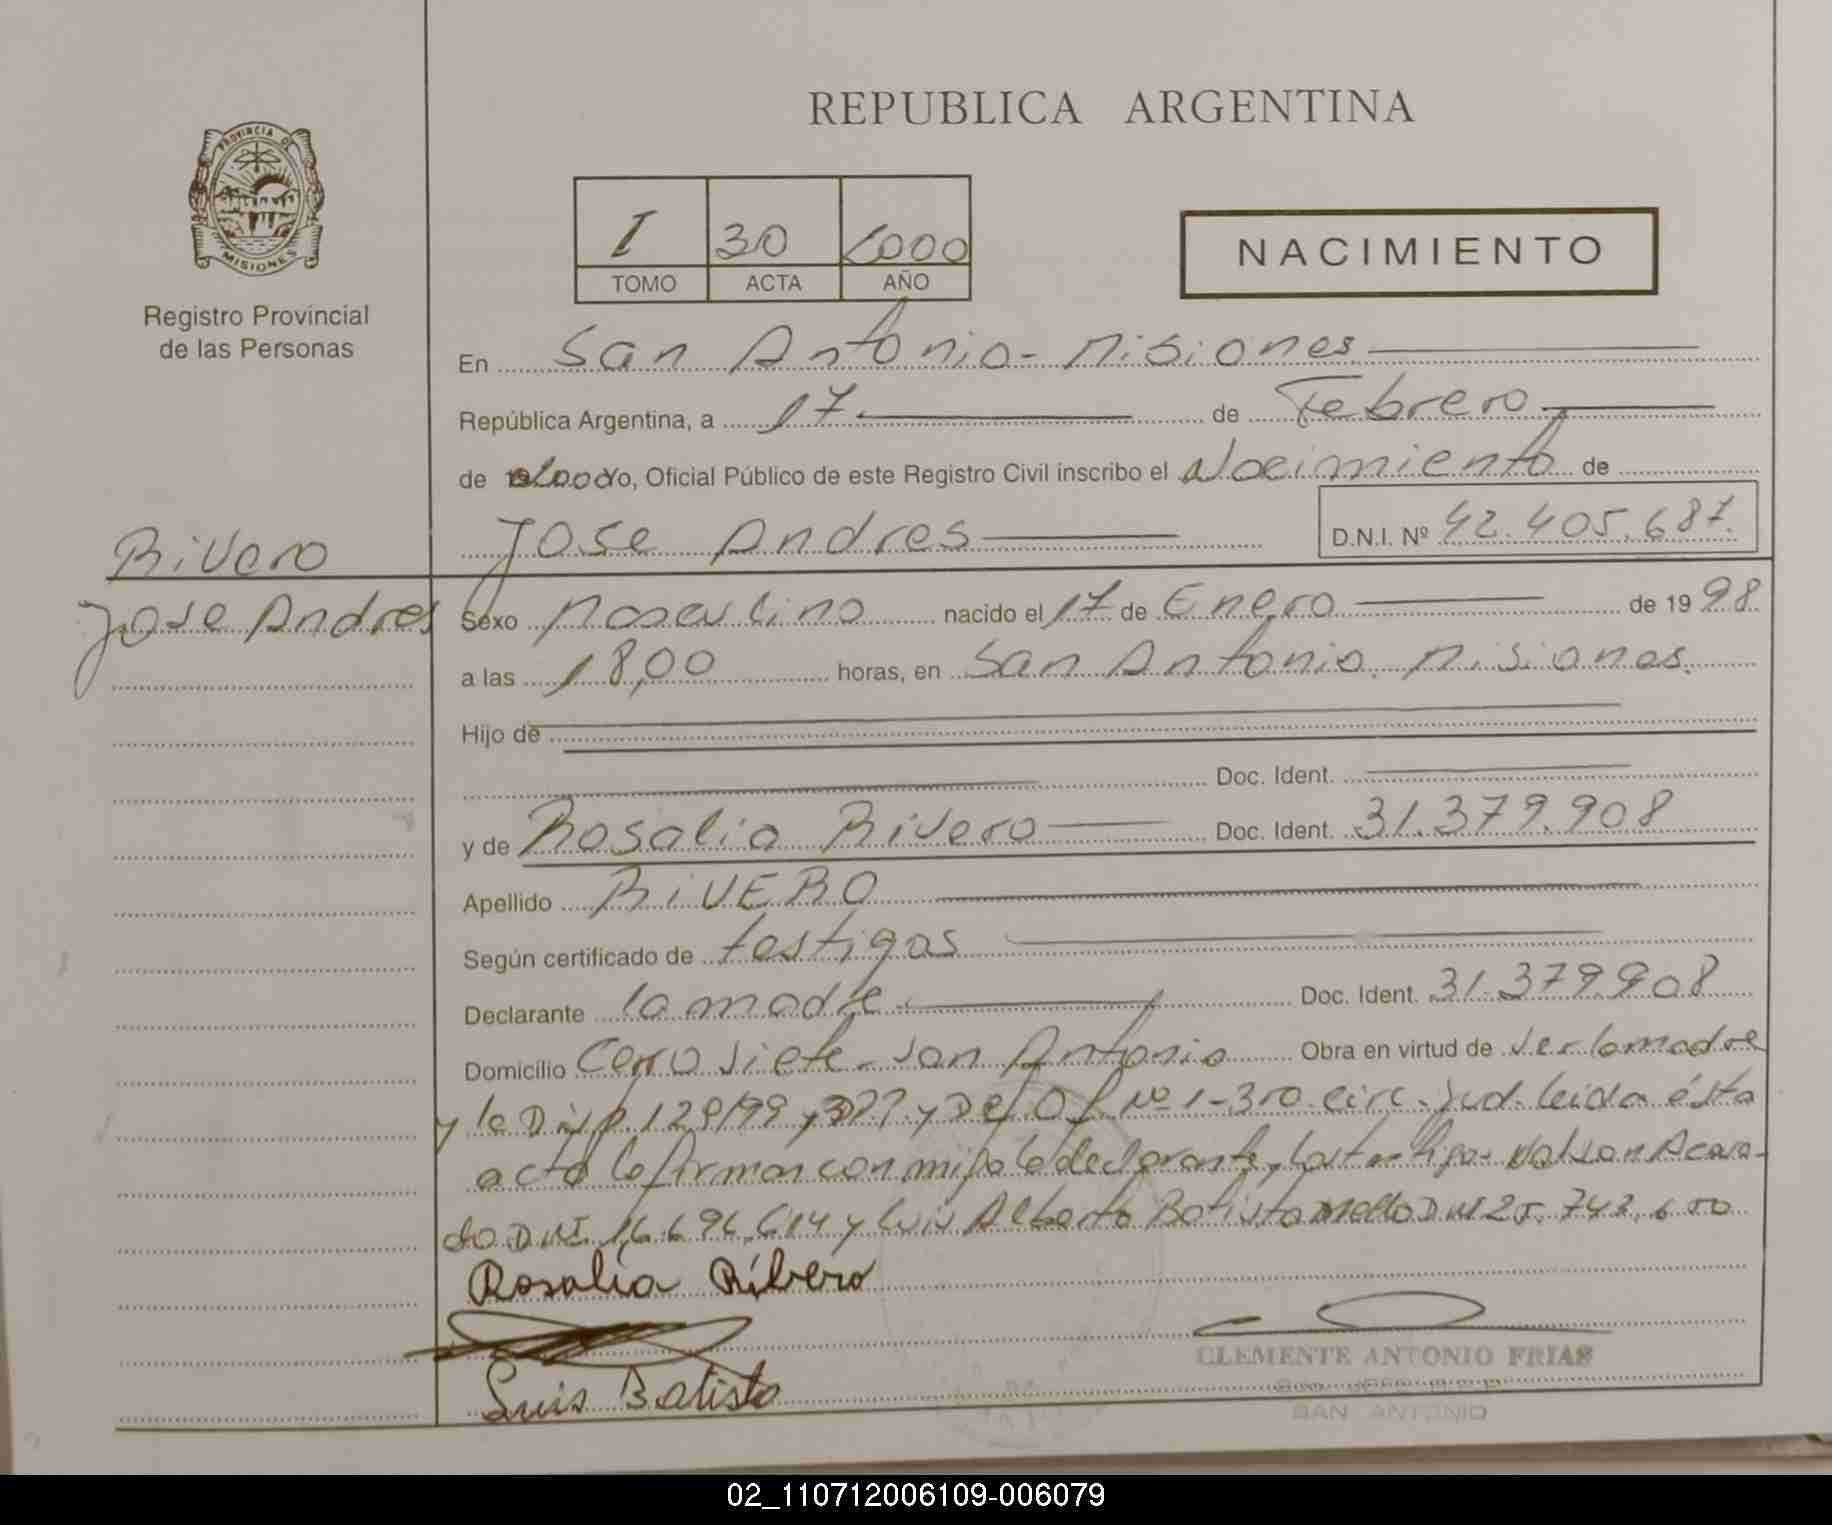 REPUBLICA ARGENTINA
PROVINCIA DE
MISIONES
Registro Provincial
de las Personas
I 30 2000
TOMO ACTA AÑO
NACIMIENTO
En San Antonio - Misiones
República Argentina, a 17 de Febrero
de 2000 Yo, Oficial Público de este Registro Civil inscribo el Nacimiento de
Jose Andres
D.N.I. Nº 42.405.687.
Rivero
Jose Andres
Sexo Masculino nacido el 17 de Enero de 1998
a las 18,00 horas, en San Antonio. Misiones.
Hijo de
Doc. Ident.
y de Rosalia Rivero Doc. Ident. 31.379.908
Apellido RIVERO
Según certificado de testigos
Declarante la madre Doc. Ident. 31.379.908
Domicilio Cerro Siete - San Antonio Obra en virtud de ser la madre
y la Disp. 129/99 y De Of. Nº 1-310 circ. Jud. Leida ésta
acta la firman con migo la declarante, los testigos Acava-
do D.N.I. 16.696.614 y Luis Alberto Batista Mello DNI 25.743.600
Rosalía Ribero
Luis Batista
CLEMENTE ANTONIO FRIAS
SAN ANTONIO
02_110712006109-006079